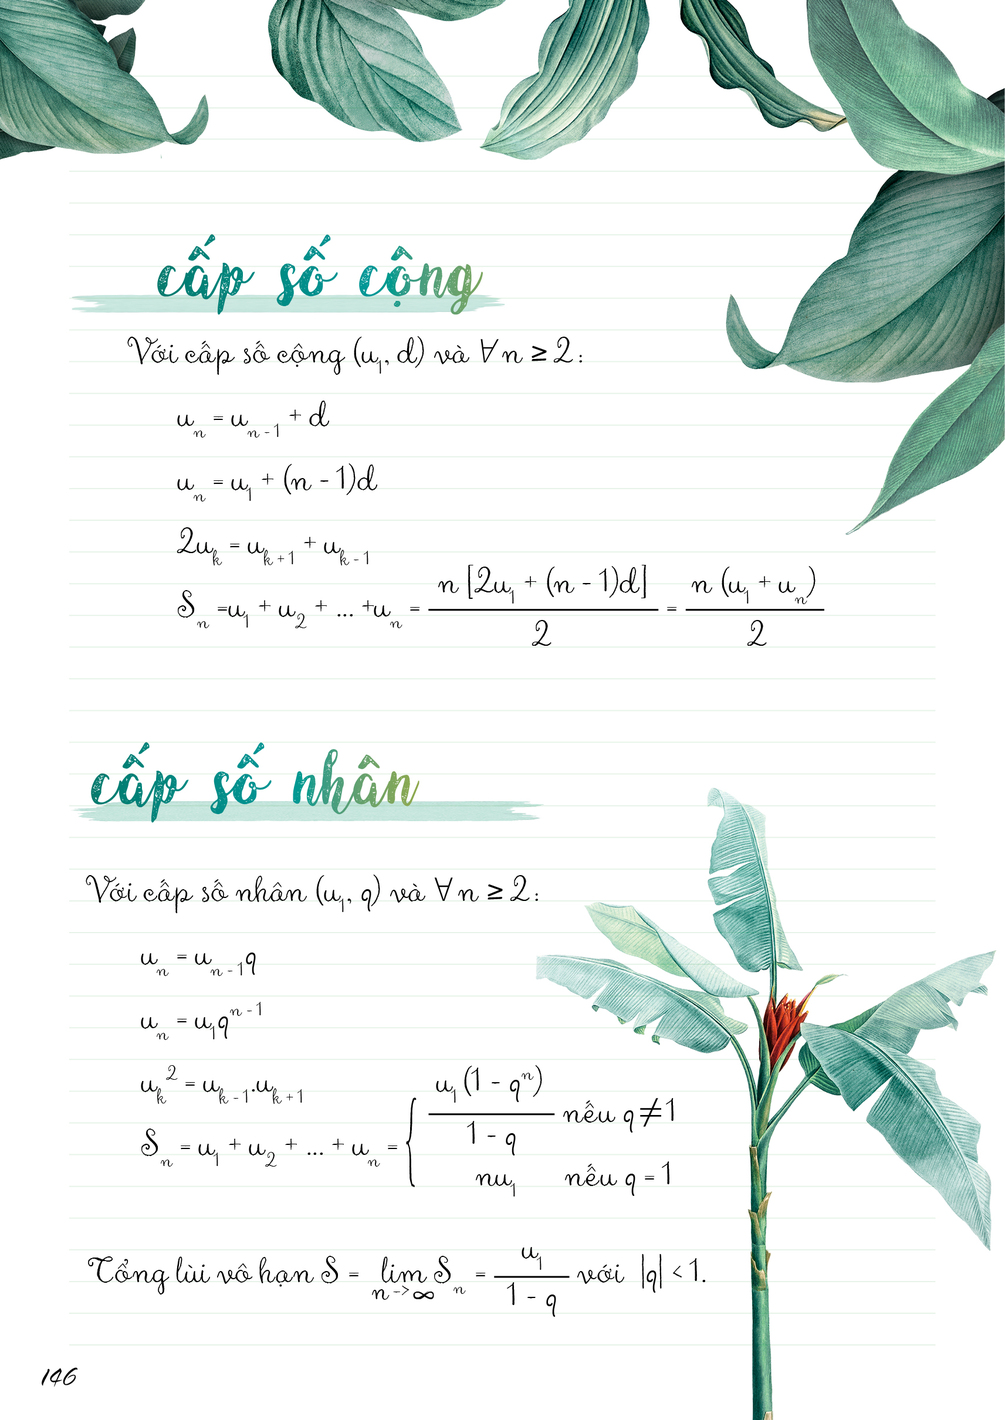 cấp số cộng
Với cấp số cộng (u₁, d) và ∀ n ≥ 2 :
uₙ = uₙ₋₁ + d
uₙ = u₁ + (n - 1)d
2uₖ = uₖ₊₁ + uₖ₋₁
Sₙ = u₁ + u₂ + ... + uₙ = n [2u₁ + (n - 1)d] / 2 = n (u₁ + uₙ) / 2
cấp số nhân
Với cấp số nhân (u₁, q) và ∀ n ≥ 2 :
uₙ = uₙ₋₁q
uₙ = u₁qⁿ⁻¹
uₖ² = uₖ₋₁.uₖ₊₁
Sₙ = u₁ + u₂ + ... + uₙ = { u₁(1 - qⁿ) / 1 - q nếu q ≠ 1
nu₁ nếu q = 1
Tổng lùi vô hạn S = lim Sₙ = u₁ / 1 - q với |q| < 1.
n -> ∞
146